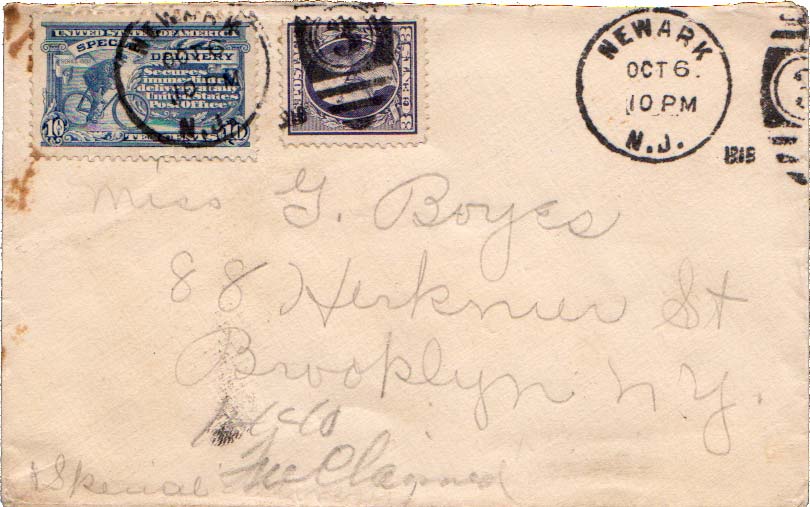 UNITED STATES OF AMERICA
SPECIAL DELIVERY
Secures
immediate
delivery at any
United States
Post Office
10 TEN 10
NEWARK
OCT 6
10 PM
N.J.
POSTAGE
3 CENTS 3
1918
NEWARK
OCT 6.
10 PM
N.J.
1918
Miss G. Boyes
88 Herkimer St
Brooklyn N.Y.
Fee Claimed
Special